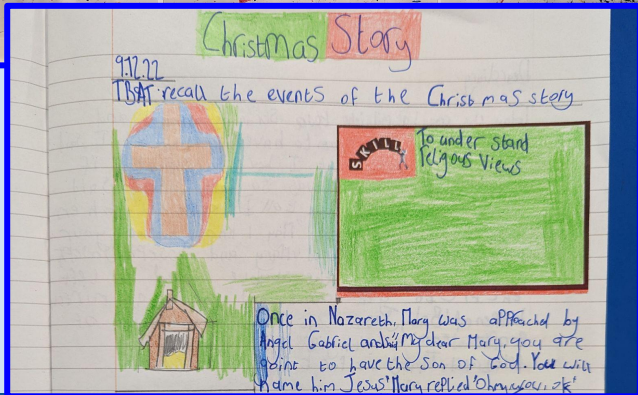 Christmas Story
9.12.22
TBAT recall the events of the Christmas story
SKILL
To under stand
religous Views
Once in Nazareth, Mary was approached by
Angel Gabriel and "My dear Mary, you are
going to have the Son of God. You will
name him Jesus" Mary replied ok"